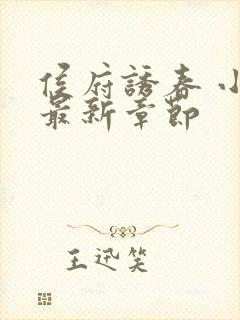 侯府誘春 小
最新章節
王迅笑